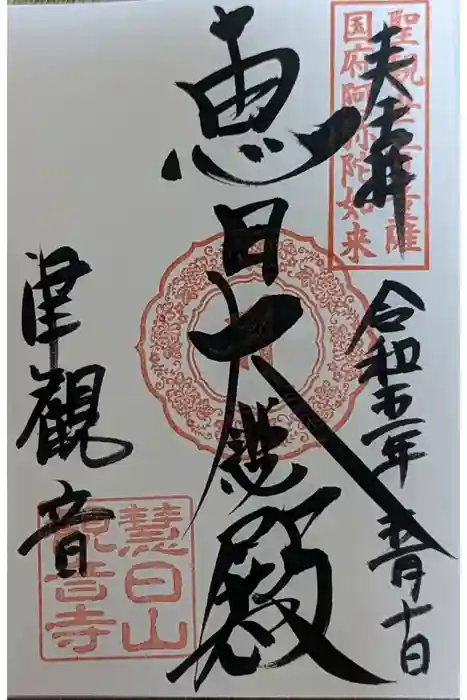 聖観世音菩薩
国府阿弥陀如来
奉拝
令和五年 五月十日
恵日大悲殿
津觀音
慧日山
観音寺